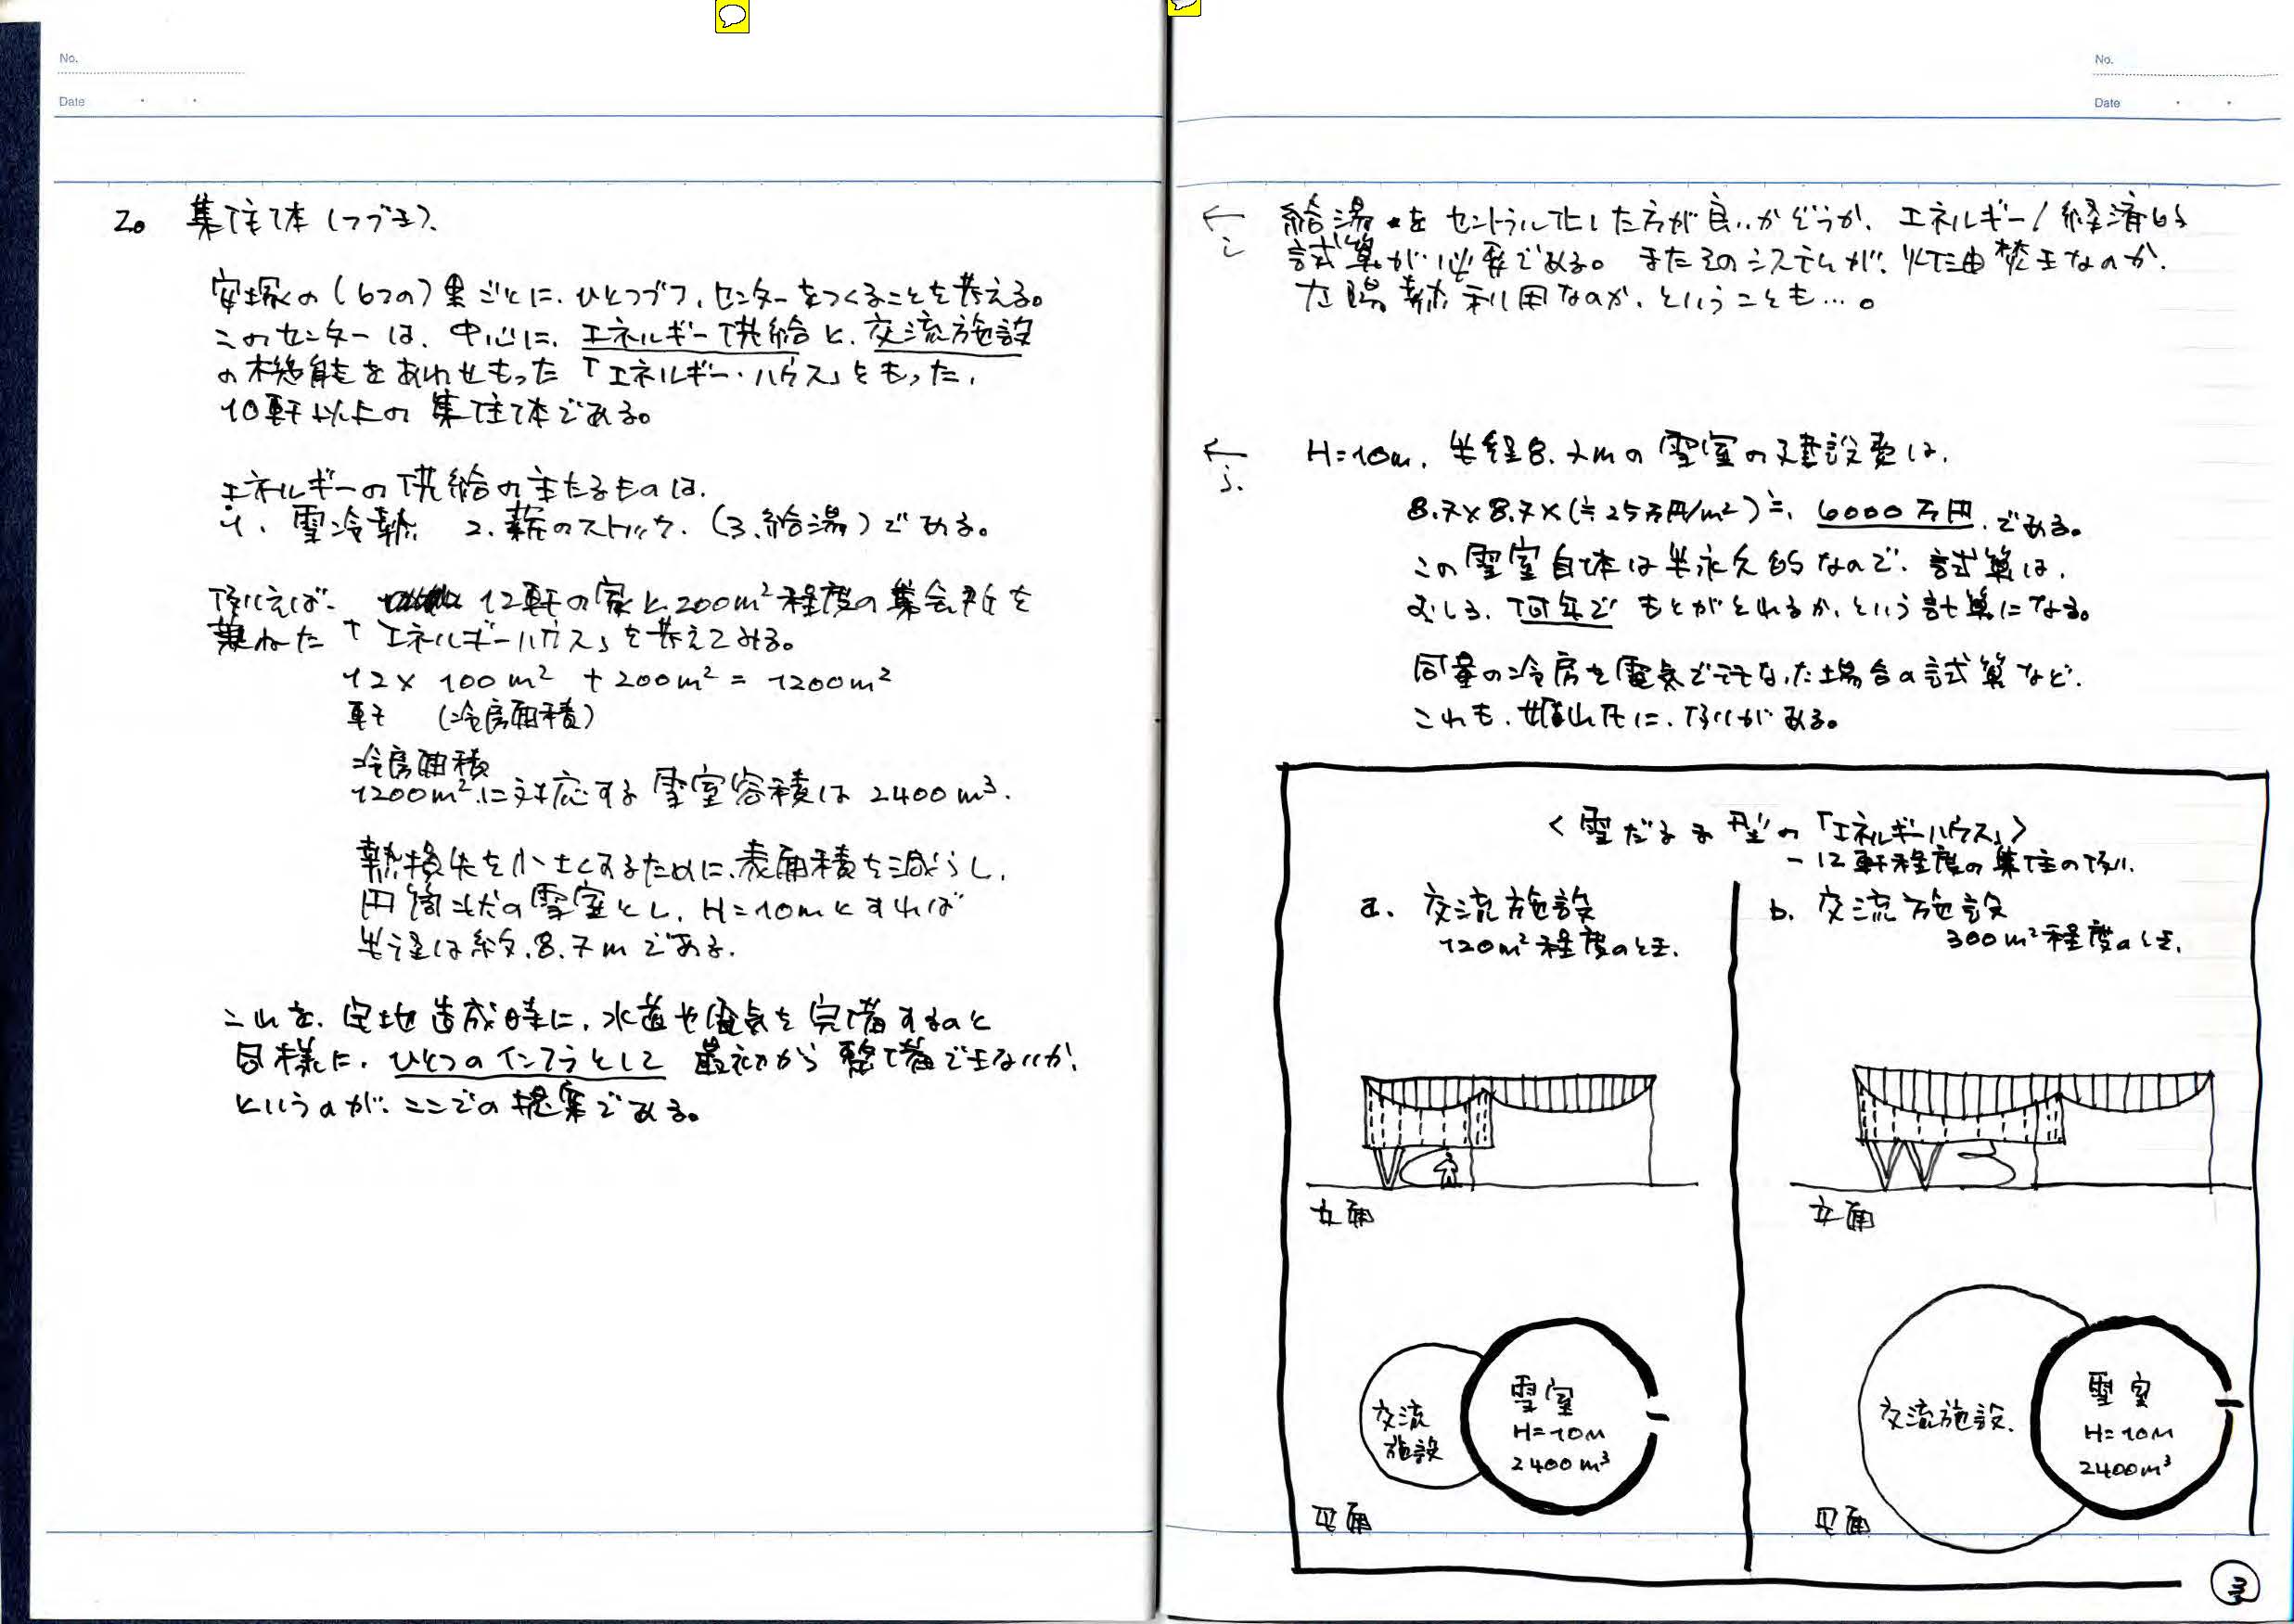 No.
Date
2. 集住体(つづき).
安塚の(6つの)里ごとに、ひとつづつ、センターをつくることを考える。
このセンターは、中心に、エネルギー供給と、交流施設
の機能をあわせもった「エネルギー・ハウス」をもった、
10軒以上の集住体である。
エネルギーの供給の主たるものは、
1. 雪冷熱 2. 薪のストック. (3. 給湯)である。
例えば、 12軒の家と、200m²程度の集会所を
兼ねた「エネルギーハウス」を考えてみる。
12× 100m² +200m² = 1200m²
軒 (冷房面積)
冷房面積
1200m²に対応する雪室容積は 2400m³.
熱損失を小さくするために、表面積を減らし、
円筒状の雪室とし、H=10mとすれば
半径は約、8.7mである.
これを、宅地造成時に、水道や電気を完備するのと
同様に、ひとつのインフラとして 最初から整備できないか、
というのが、ここでの提案である。
No.
Date
← 給湯をセントラル化した方が良いかどうか、エネルギー/経済的
試算が必要である。またそのシステムが、灯油焚きなのか、
太陽熱利用なのか、ということも…。
← H=10m、半径8.7mの雪室の建設費は、
8.7×8.7×(≒25万円/m²)≒、6000万円、である。
この雪室自体は半永久的なので、試算は、
むしろ、何年でもとがとれるか、という計算になる。
同量の冷房を電気でまかなった場合の試算など、
これも、に、例がある。
<雪だるま型の「エネルギーハウス」>
- 12軒程度の集住の例.
a. 交流施設
120m²程度のとき.
b. 交流施設
300m²程度のとき.
立面
立面
交流
施設
雪室
H=10m
2400m³
交流施設.
雪室
H=10m
2400m³
平面
平面
3